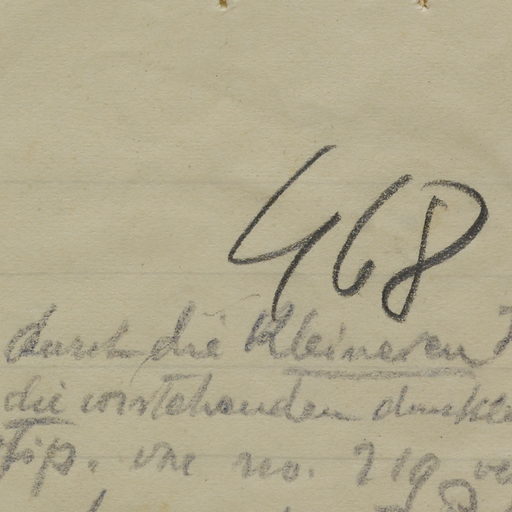 468
durch die kleineren
die vorstehenden dunkle
Tip. vne no. 719 ve